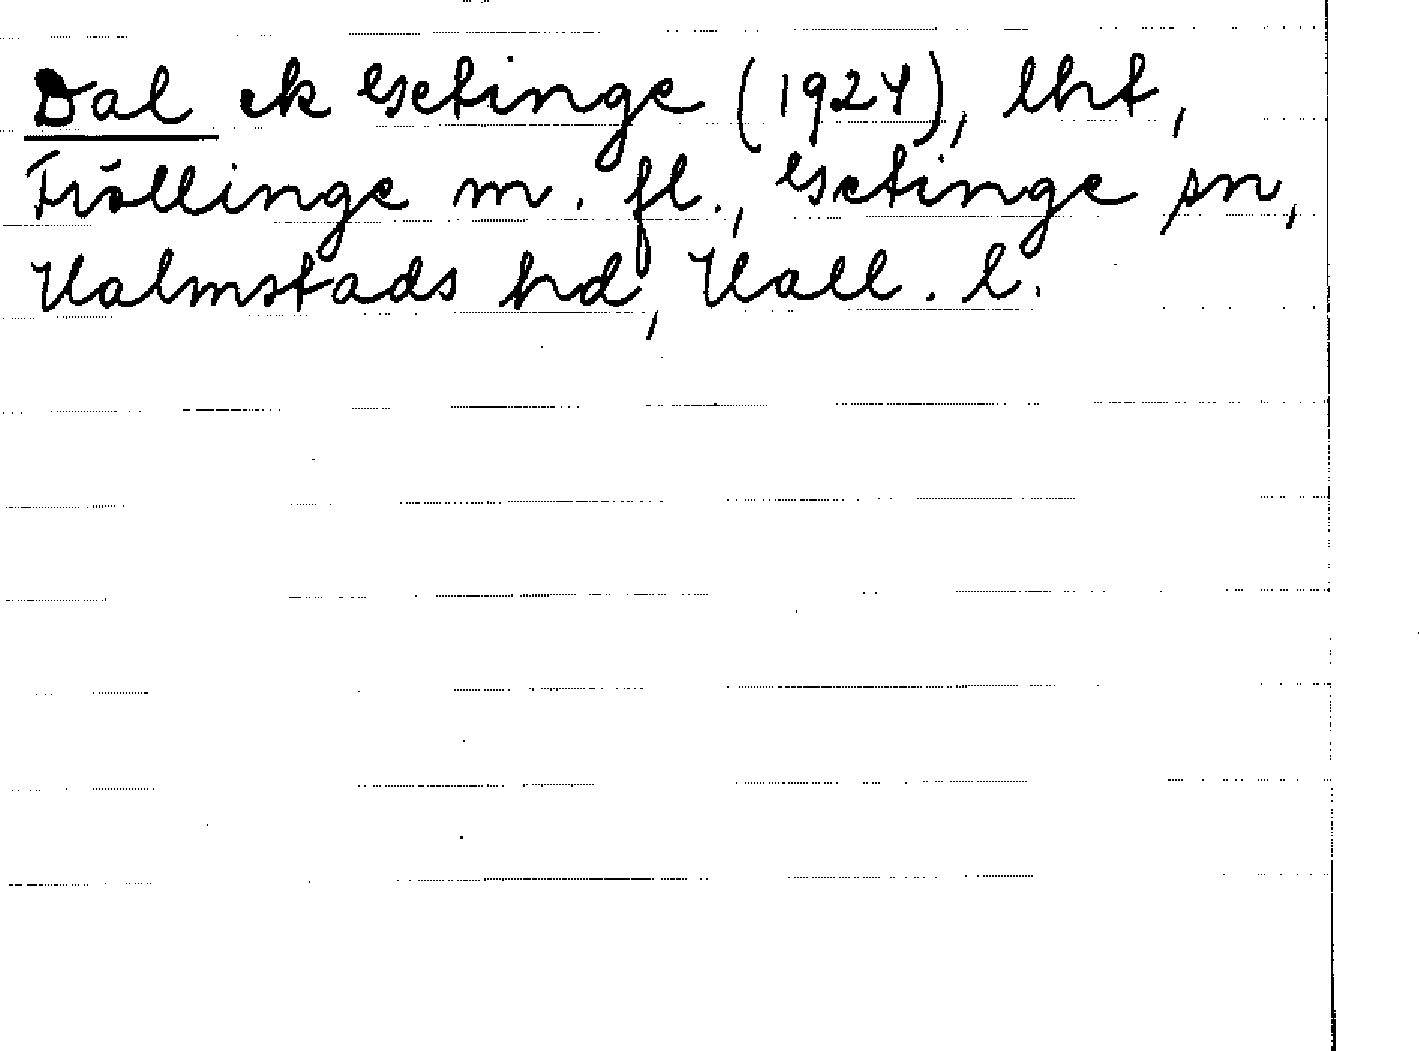 Dal ek Getinge (1924), lht,
Fröllinge m. fl., Getinge sn,
Halmstads hd, Hall. l.